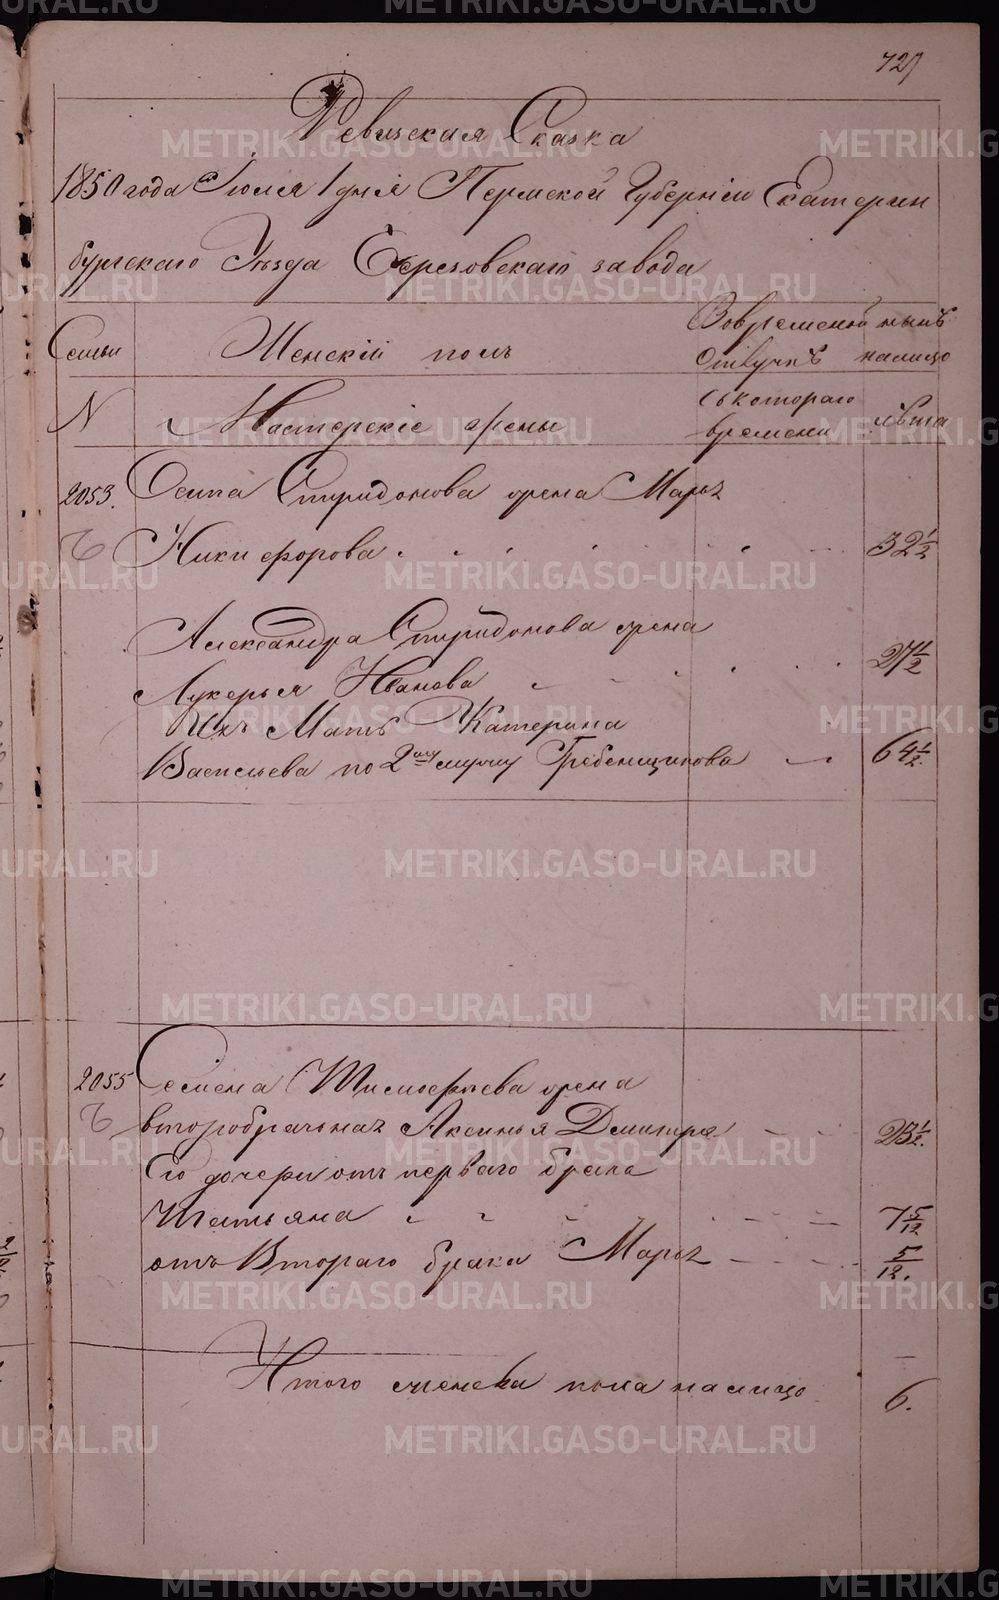 727
Ревизская Сказка
1850 года Июля 1 дня Пермской Губернiи Екатерин
бургскаго Уѣзда Березовскаго завода
Семьи
Женскiй полъ
Вовременной
отлучкѣ
нынѣ
налицо
N
Мастерскiе жены
съ котораго
времени
лѣта
2053.
Осипа Спиридонова жена Марья
Никифорова
32 1/2
Александра Спиридонова жена
Лукерья Иванова
27 1/2
Ихъ Мать Катерина
Васильева по 2му мужу Гребенщикова
64 1/2
2055
Семена Тимофѣева жена
второбрачная Аксинья Дмитрiе
23 1/2.
Его дочери отъ перваго брака
Татьяна
7 5/12
отъ Втораго брака Марья
5/12.
Итого женска пола налицо
6.
METRIKI.GASO-URAL.RU